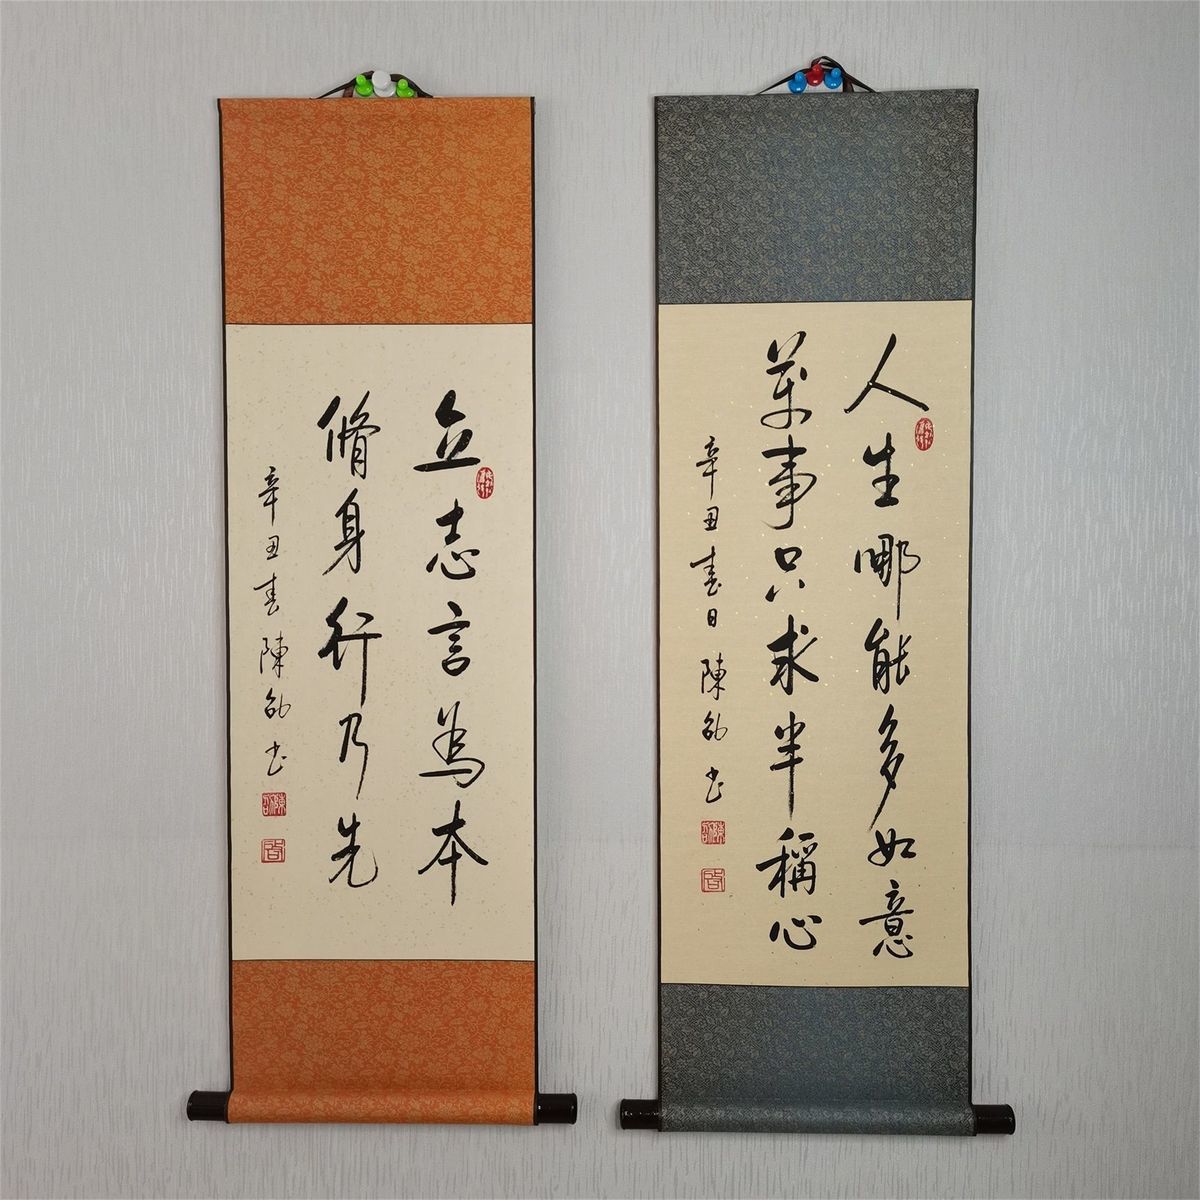 立志言為本
脩身行乃先
辛丑春陳劭书
人生哪能多如意
萬事只求半稱心
辛丑春日陳劭书